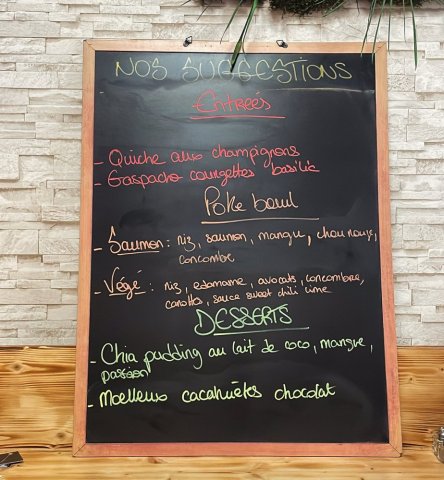 NOS SUGGESTIONS
Entreés
- Quiche aux champignons
- Gaspacho courgettes basilic
Poke bowl
- Saumon : riz, saumon, mangue, chou rouge,
concombre
- Végé : riz, edamame, avocats, concombre,
carotte, sauce sweet chili lime
DESSERTS
- Chia pudding au lait de coco, mangue,
passion
- Moelleux cacahuètes chocolat